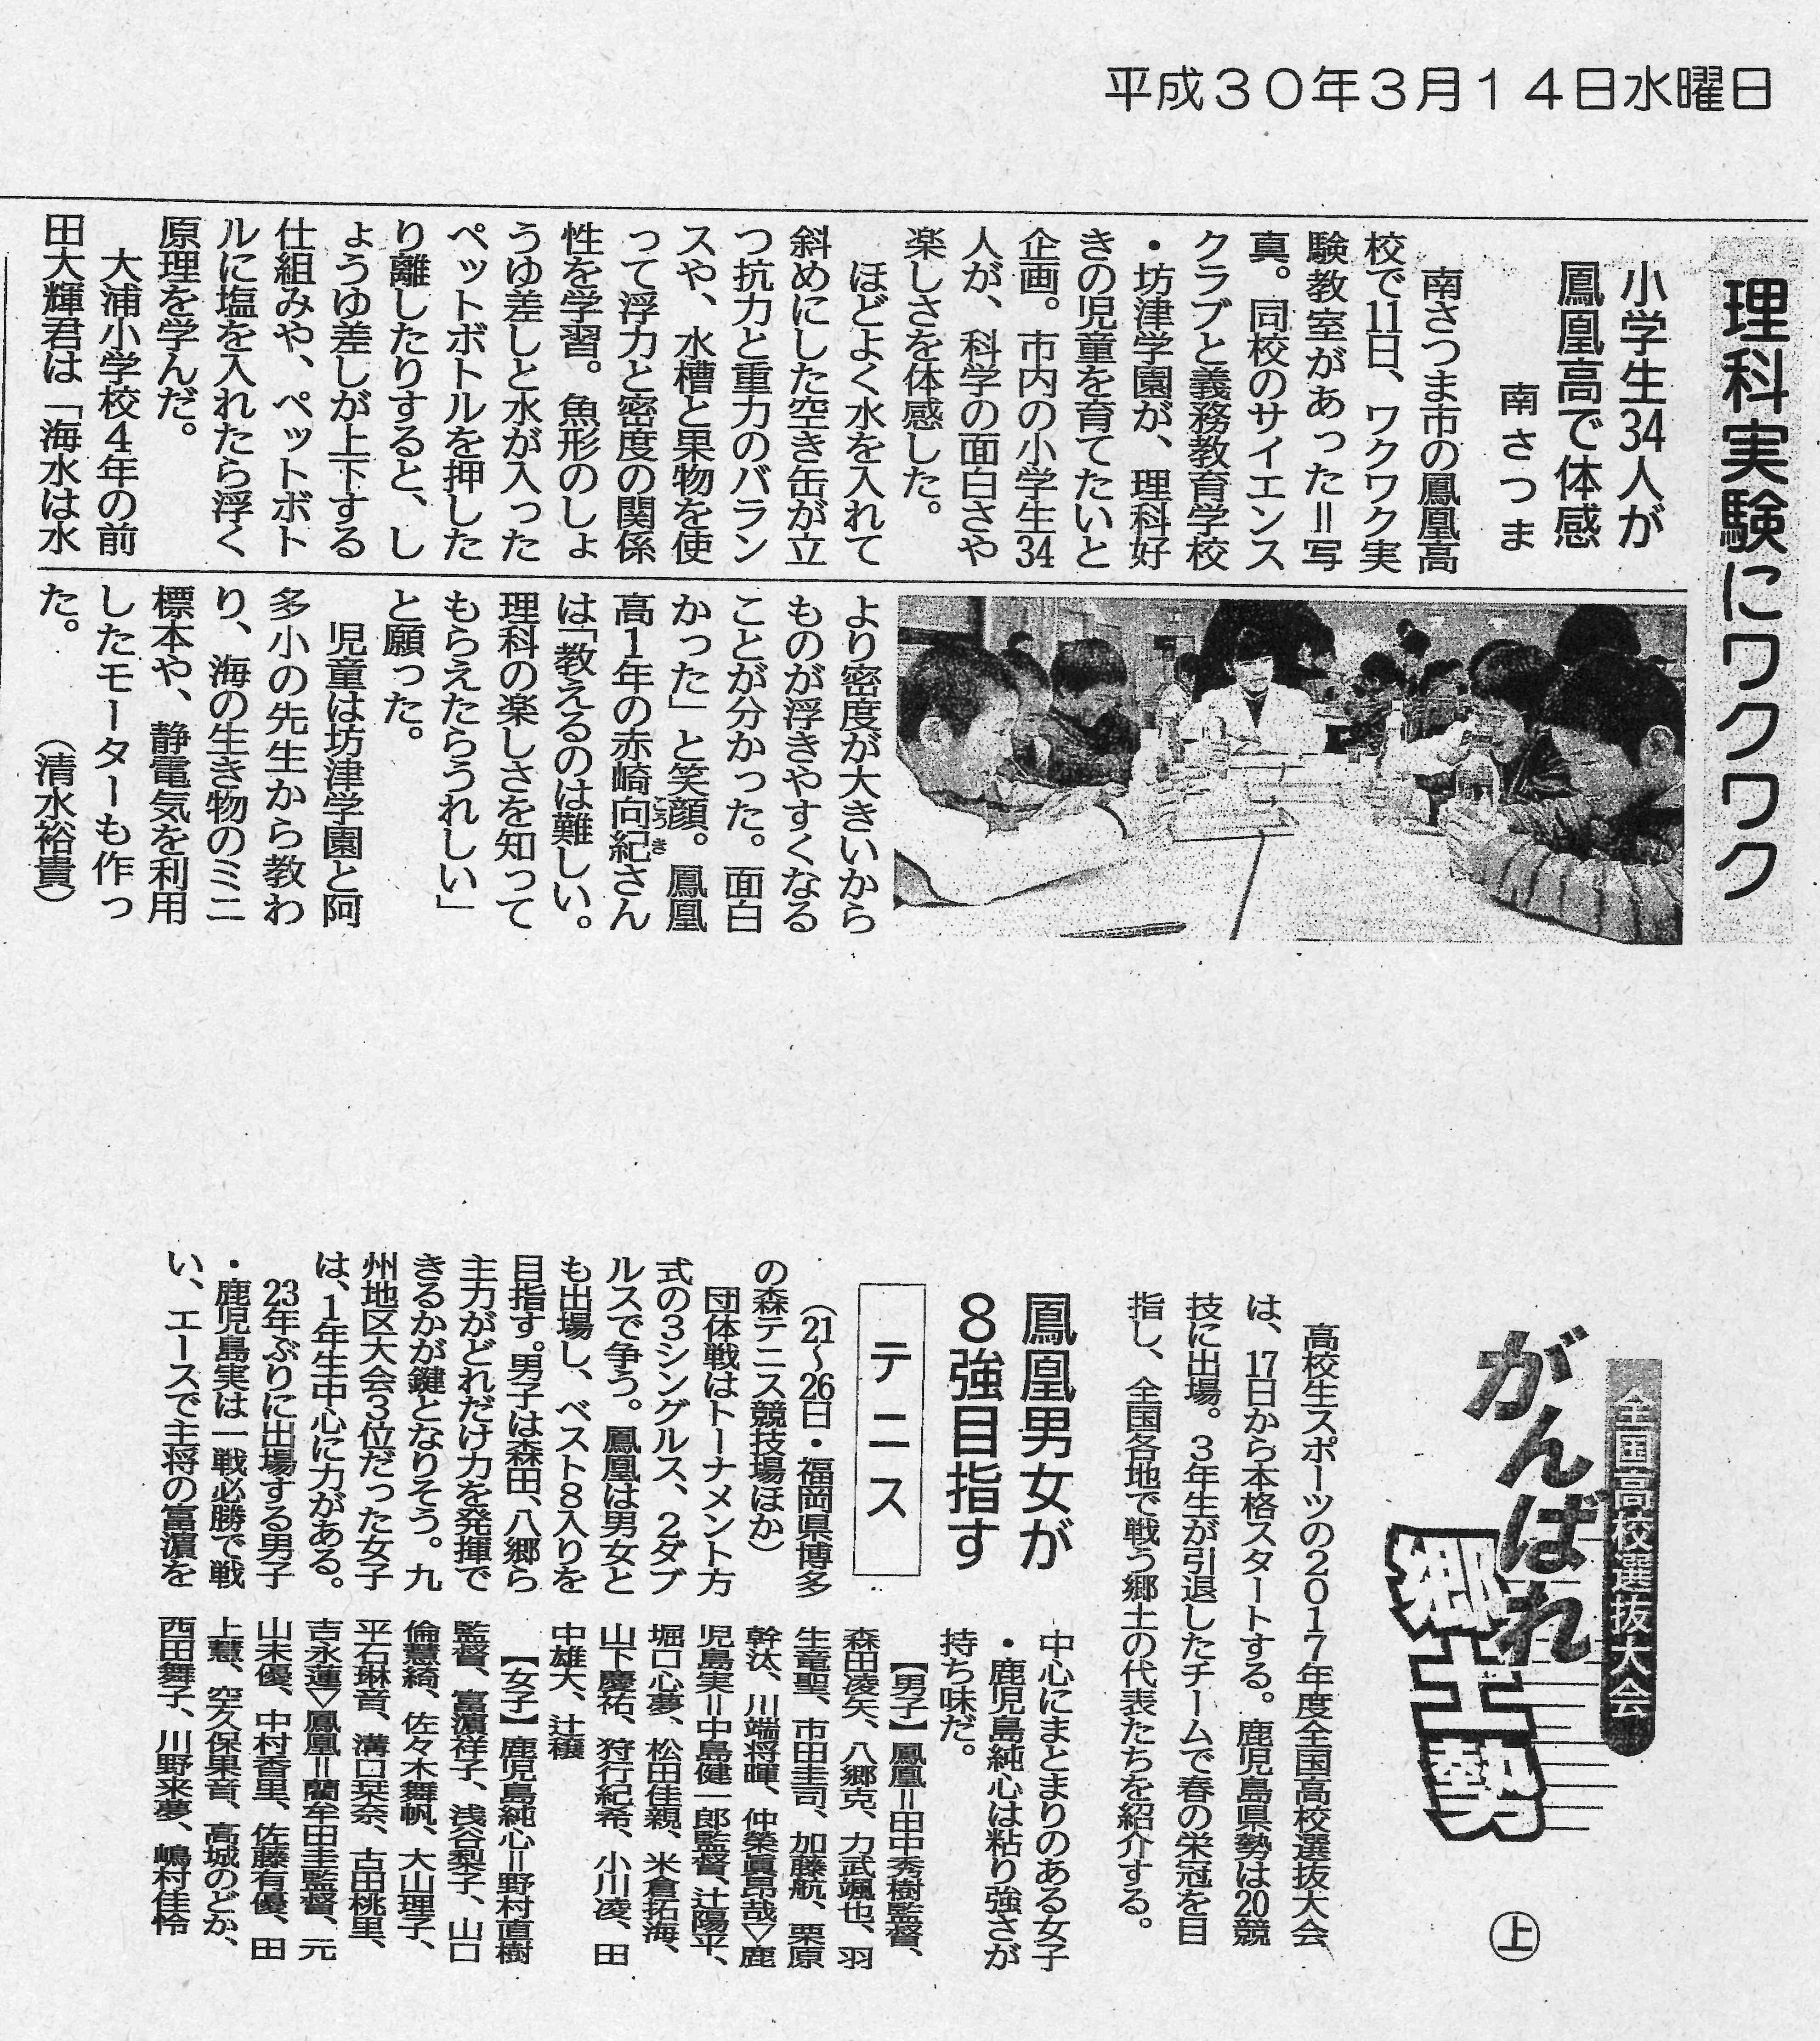 平成30年3月14日水曜日
理科実験にワクワク
小学生34人が
鳳凰高で体感
南さつま
南さつま市の鳳凰高
校で11日、ワクワク実
験教室があった＝写
真。同校のサイエンス
クラブと義務教育学校
・坊津学園が、理科好
きの児童を育てたいと
企画。市内の小学生34
人が、科学の面白さや
楽しさを体感した。
ほどよく水を入れて
斜めにした空き缶が立
つ抗力と重力のバラン
スや、水槽と果物を使
って浮力と密度の関係
性を学習。魚形のしょ
うゆ差しと水が入った
ペットボトルを押した
り離したりすると、し
ょうゆ差しが上下する
仕組みや、ペットボト
ルに塩を入れたら浮く
原理を学んだ。
大浦小学校4年の前
田大輝君は「海水は水
より密度が大きいから
ものが浮きやすくなる
ことが分かった。面白
かった」と笑顔。鳳凰
高1年の赤崎向紀さん
は「教えるのは難しい。
理科の楽しさを知って
もらえたらうれしい」
と願った。
児童は坊津学園と阿
多小の先生から教わ
り、海の生き物のミニ
標本や、静電気を利用
したモーターも作っ
た。　（清水裕貴）
全国高校選抜大会
がんばれ
郷土勢
㊤
高校生スポーツの2017年度全国高校選抜大会
は、17日から本格スタートする。鹿児島県勢は20競
技に出場。3年生が引退したチームで春の栄冠を目
指し、全国各地で戦う郷土の代表たちを紹介する。
鳳凰男女が
8強目指す
テニス
（21～26日・福岡県博多
の森テニス競技場ほか）
団体戦はトーナメント方
式の3シングルス、2ダブ
ルスで争う。鳳凰は男女と
も出場し、ベスト8入りを
目指す。男子は森田、八郷ら
主力がどれだけ力を発揮で
きるかが鍵となりそう。九
州地区大会3位だった女子
は、1年生中心に力がある。
23年ぶりに出場する男子
・鹿児島実は一戦必勝で戦
い、エースで主将の富濵を
中心にまとまりのある女子
・鹿児島純心は粘り強さが
持ち味だ。
【男子】鳳凰＝田中秀樹監督、
森田凌矢、八郷克、力武颯也、羽
生竜聖、市田圭司、加藤航、栗原
幹汰、川端将暉、仲榮眞昂哉▽鹿
児島実＝中島健一郎監督、辻陽平、
堀口心夢、松田佳親、米倉拓海、
山下慶祐、狩行紀希、小川凌、田
中雄大、辻穣
【女子】鹿児島純心＝野村直樹
監督、富濵祥子、浅谷梨子、山口
倫慧綺、佐々木舞帆、大山理子、
平石琳音、溝口栞奈、古田桃里、
吉永蓮▽鳳凰＝藺牟田圭監督、元
山未優、中村香里、佐藤有優、田
上慧、空久保果音、高城のどか、
西田舞子、川野来夢、嶋村佳怜